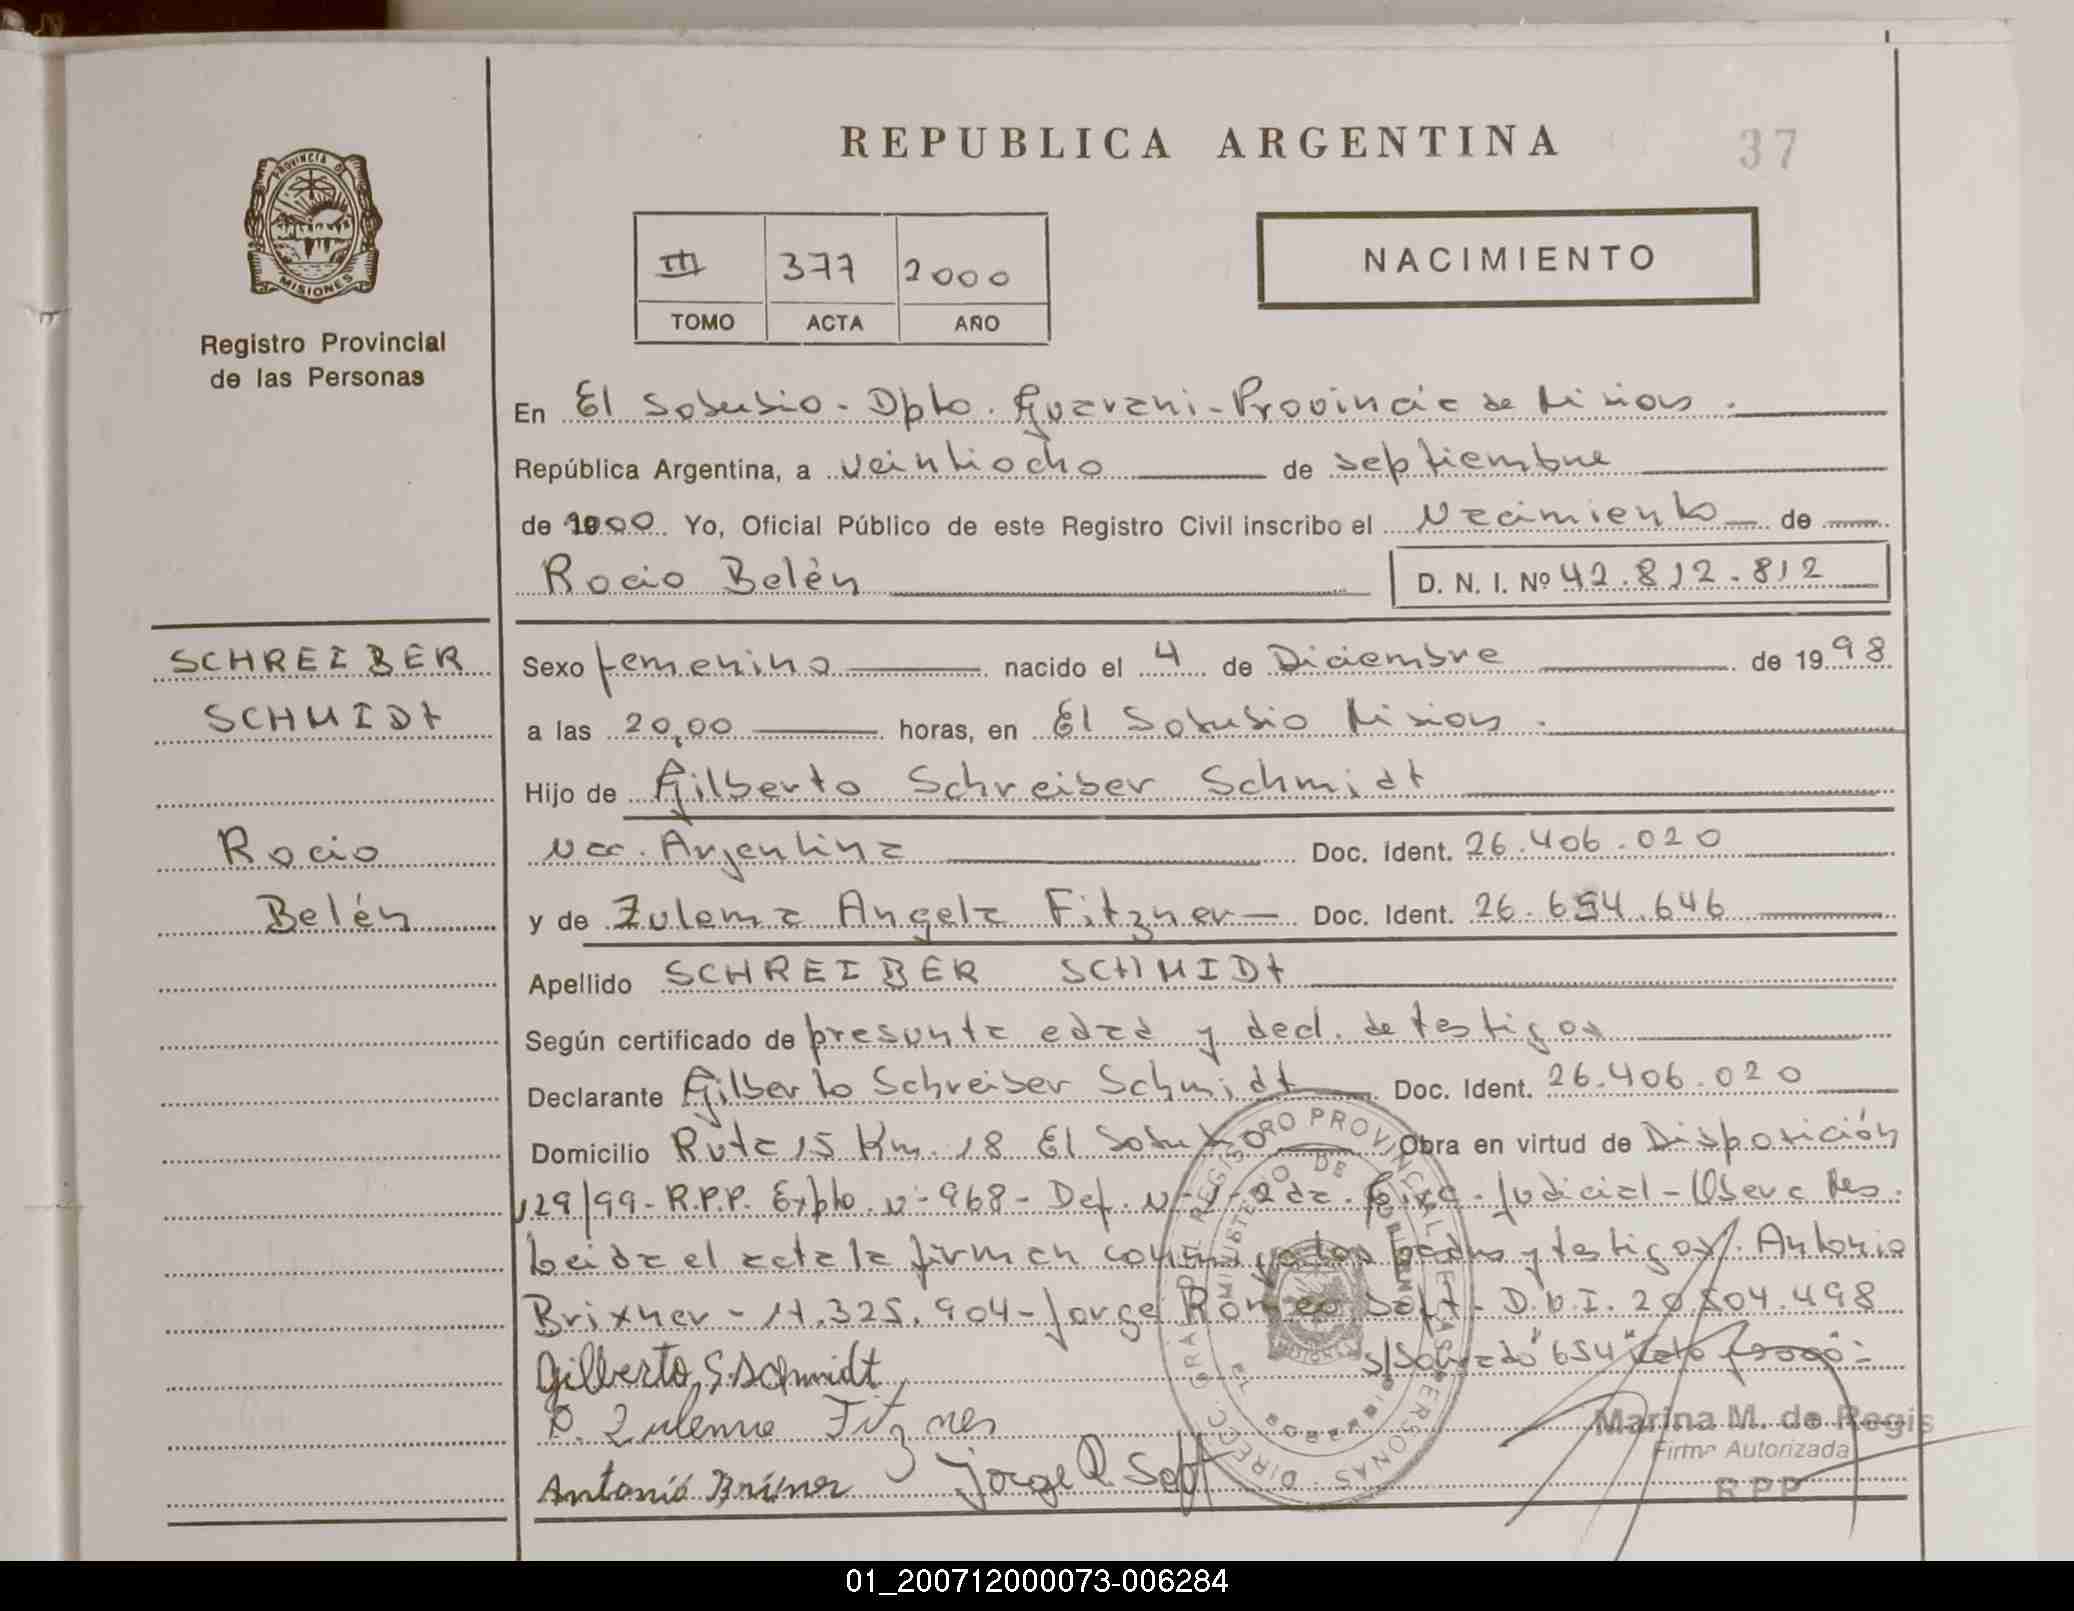 REPUBLICA ARGENTINA
37
PROVINCIA DE
MISIONES
Registro Provincial
de las Personas
III 377 2000
TOMO ACTA AÑO
NACIMIENTO
En El Soberbio - Dpto. Guarani - Provincia de Misiones.
República Argentina, a veintiocho de septiembre
de 2000 Yo, Oficial Público de este Registro Civil inscribo el Nacimiento de
Rocio Belén
D. N. I. Nº 42.812.812
SCHREIBER
SCHMIDT
Rocio
Belén
Sexo femenino nacido el 4 de Diciembre de 1998
a las 20,00 horas, en El Soberbio Misiones.
Hijo de Gilberto Schreiber Schmidt
nac. Argentina Doc. Ident. 26.406.020
y de Zulema Angela Fitzner Doc. Ident. 26.654.646
Apellido SCHREIBER SCHMIDT
Según certificado de presunta edad y decl. de testigos
Declarante Gilberto Schreiber Schmidt Doc. Ident. 26.406.020
Domicilio Ruta 15 Km. 18 El Soberbio Obra en virtud de Disposición
129/99 - R.P.P. Expte. nº 968 - Def. Nº 1 - 2da. Circ. Judicial - Obera Mes.
Leida el acta la firman conmigo los padres y testigos. Antonio
Brixner - 11.325.904 - Jorge Romeo Seft - D.N.I. 20.504.498
s/Sobrado "654"
Gilberto S. Schmidt
A. Zulema Fitzner
Antonio Jorge R. Seft
DIRECC. GRAL. DEL REGISTRO PROVINCIAL DE LAS PERSONAS
MINISTERIO DE GOBIERNO
MISIONES
Marina M. de Regis
Firma Autorizada
RPP
01_200712000073-006284